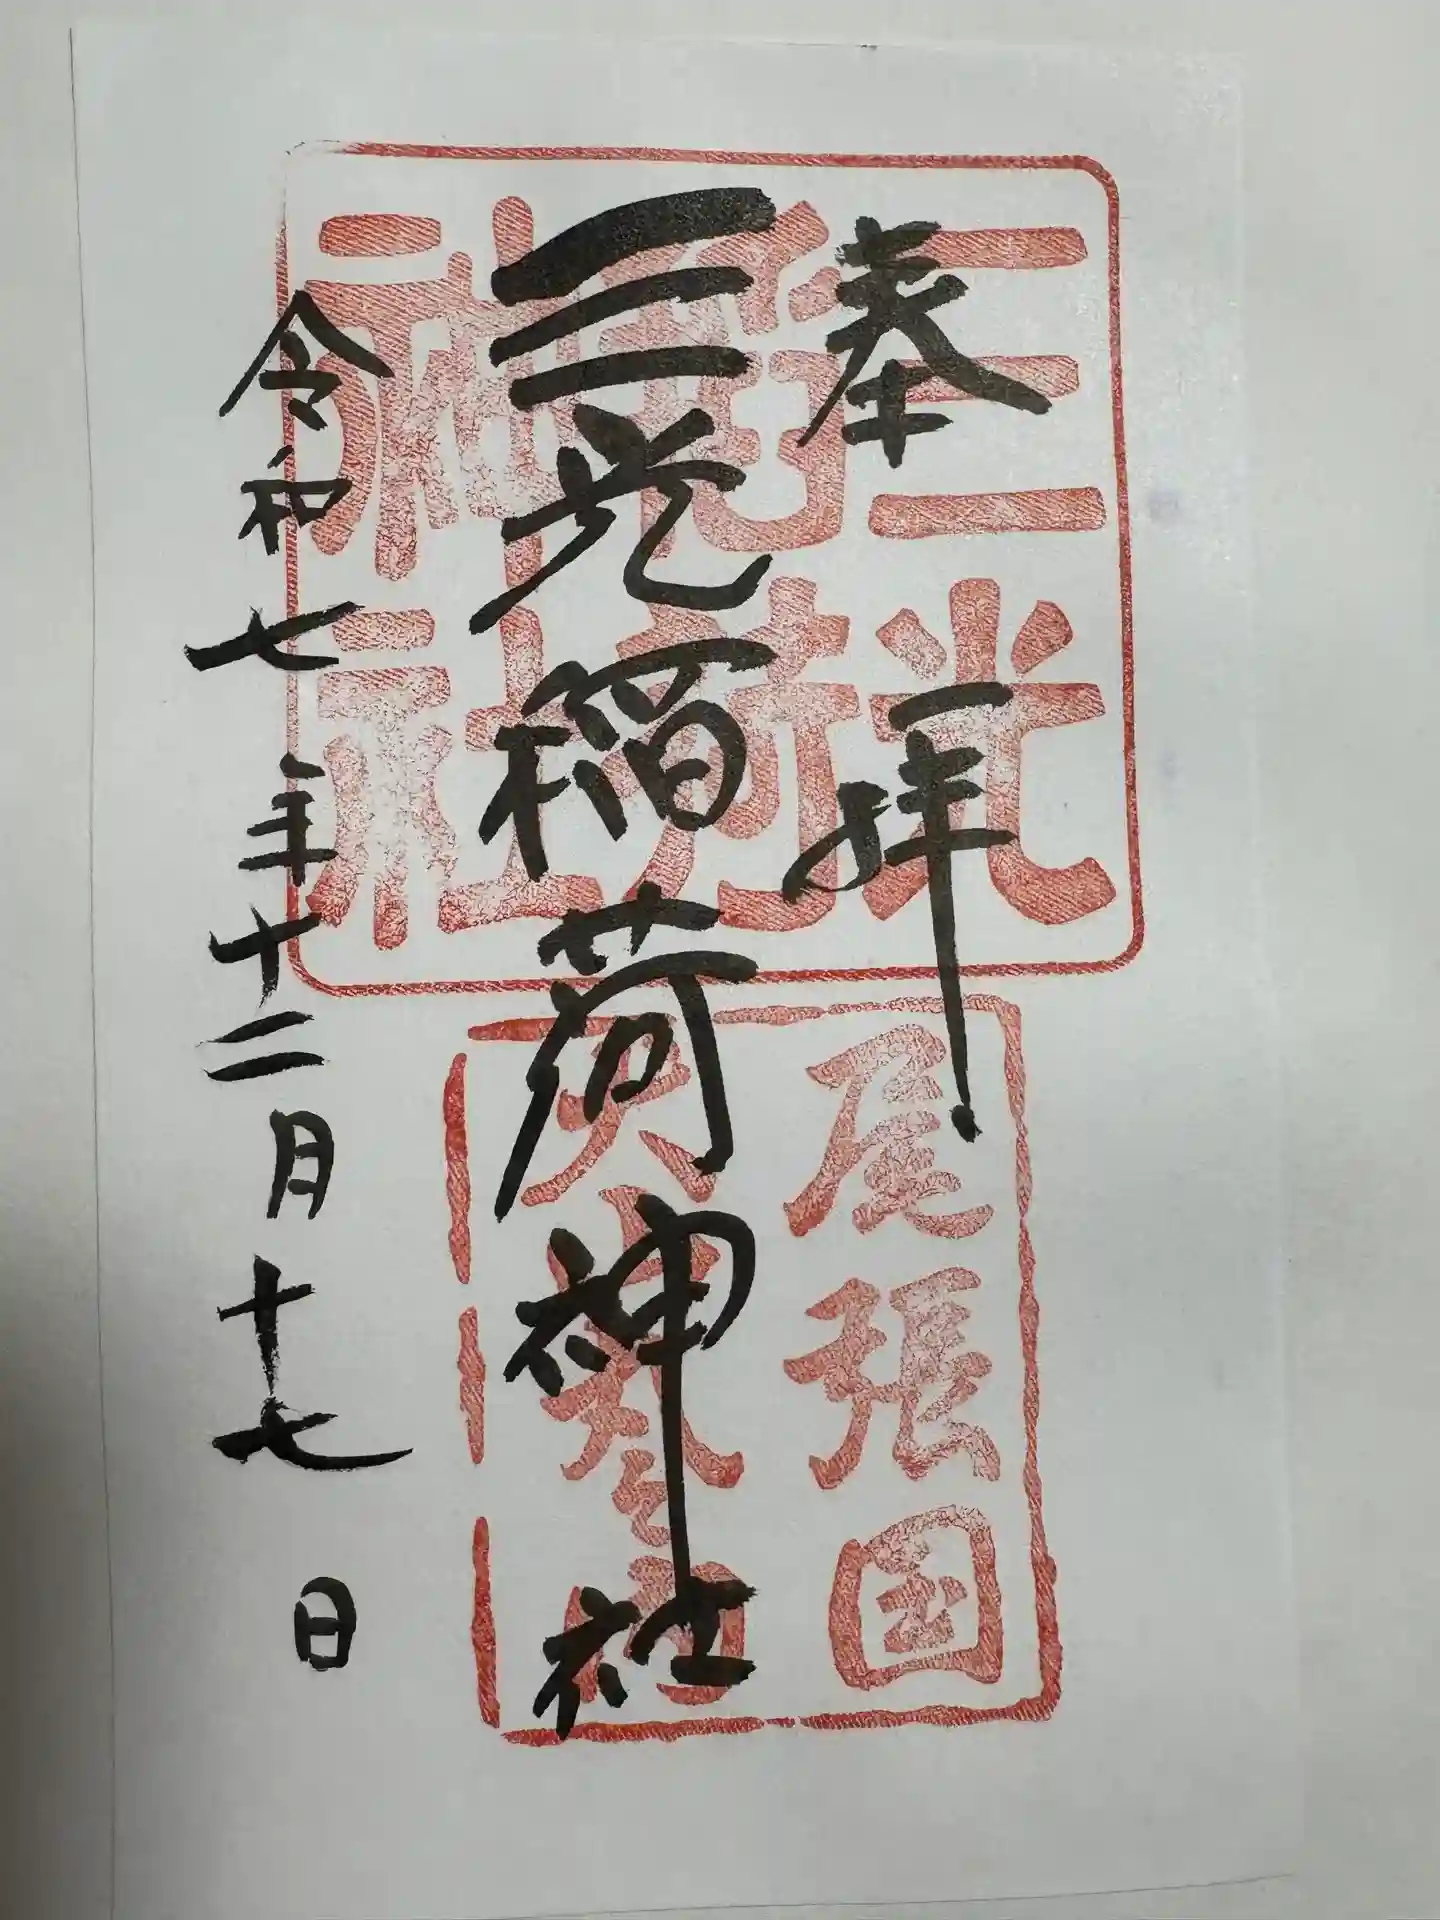 奉拝
三光稲荷神社
令和七年十二月十七日
三光稲荷神社
尾張国
犬山鎮守